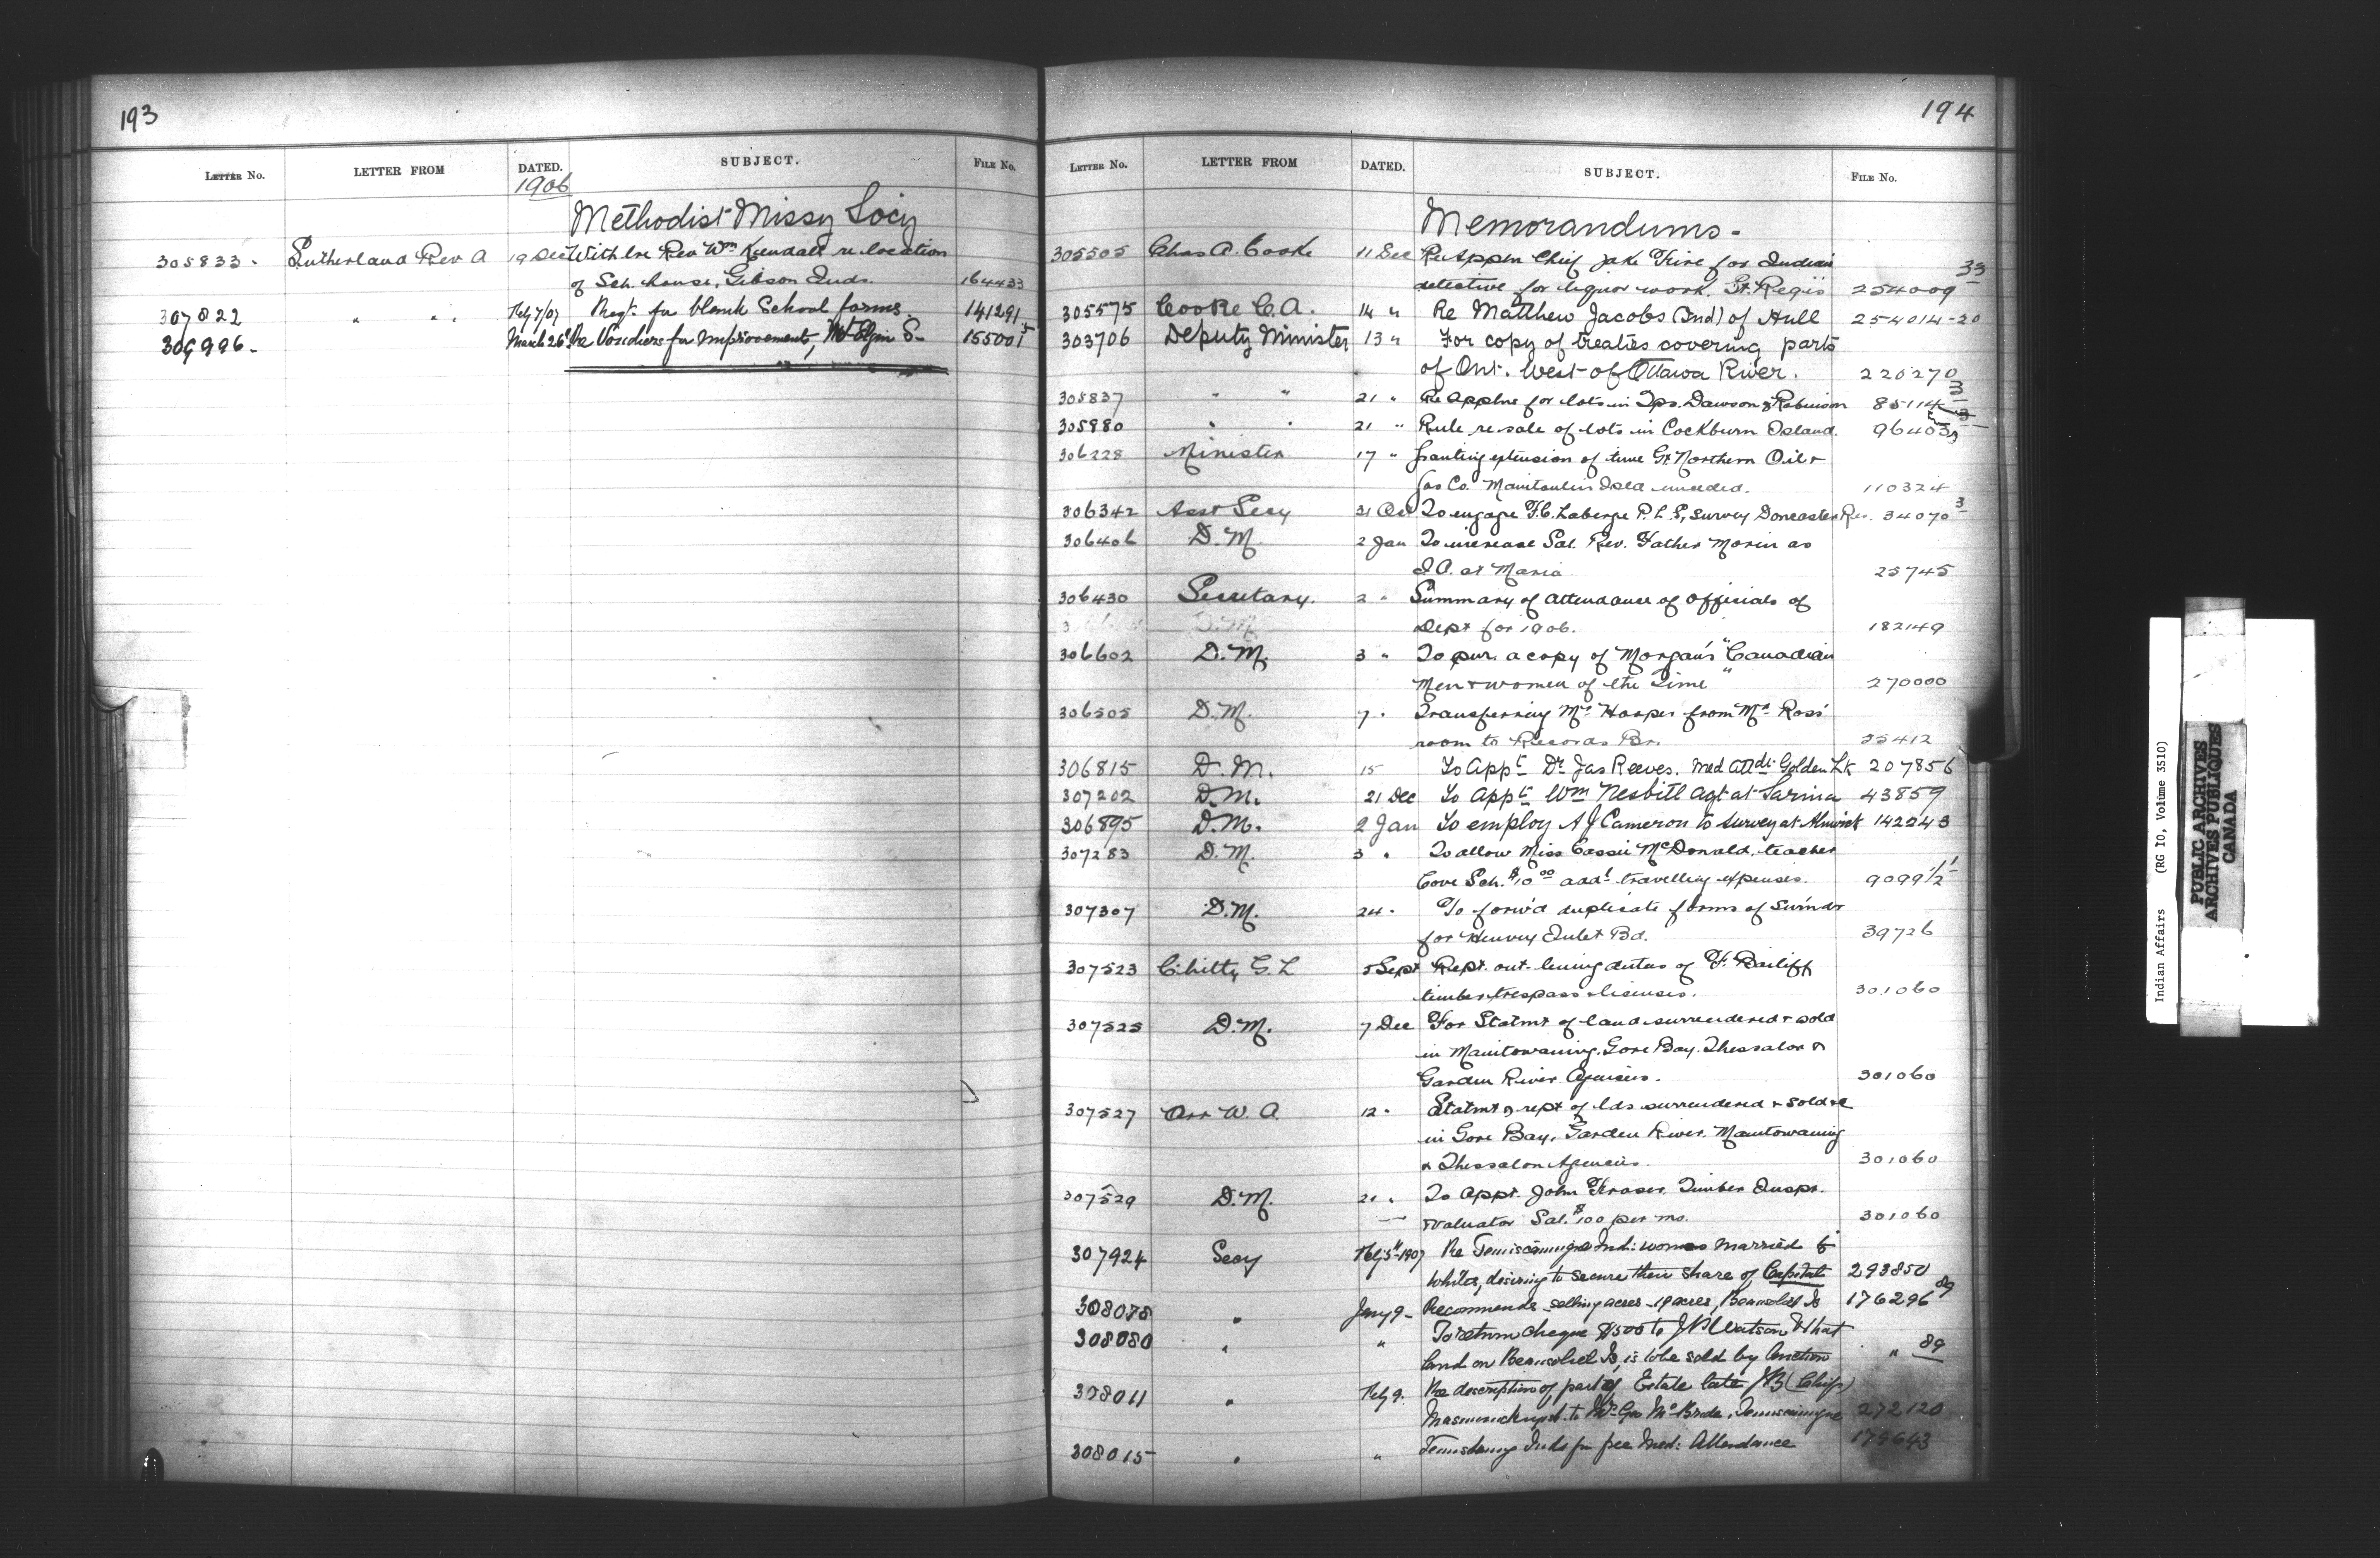 193
LETTER No. LETTER FROM DATED. SUBJECT. FILE No.
1906
Methodist Missy Socy
305833. Sutherland Rev A 19 Dec With lre Rev Wm Kendall re location
of Sch. house, Gibson Inds. 164433
307822 " " " Feby 7/07 Reqt. for blank School forms. 141291
March 26 Re Vouchers for Improvements, Mt Elgin S- 155001
194
LETTER No. LETTER FROM DATED. SUBJECT. FILE No.
Memorandums-
305505 Chas A. Cooke 11 Dec Re Appn Chief Jake Fire for Indian
detective for liquor work. St. Regis 254009-33
305575 Cooke C.A. 14 " Re Matthew Jacobs (Ind) of Hull 254014-20
303706 Deputy Minister 13 " For copy of treaties covering parts
of Ont. West of Ottawa River. 220270
305837 " " 21 " Re Applns for lots in Tps. Dawson & Robinson
305980 " " 21 " Rule re sale of lots in Cockburn Island. 96403
306228 Minister 17 " Granting extension of time Gt. Northern Oil &
Gas Co. Manitoulin Isld unceded. 110324
306342 Asst Secy 31 To engage F.C. Laberge P.L.S, survey Doncaster Res. 34070 3
306406 D.M. 2 Jan To increase Sal. Rev. Father Morin as
I.A. at Maria 25745
306430 Secretary. 2 " Summary of attendance of officials of
Dept for 1906. 182149
306602 D.M. 3 " To pur. a copy of Morgan's "Canadian
Men & women of the Time" 270000
306505 D.M. 7 " Transferring Mr Harper from Mr Ross'
room to Records Br. 35412
306815 D.M. 15 To Appt Dr Jas Reeves. Med Attdt Golden Lk 207856
307202 D.M. 21 Dec To Appt Wm Nesbitt Agt at Sarnia 43859
306895 D.M. 2 Jan To employ A J Cameron to survey at Alnwick 142243
307283 D.M. 3 " To allow Miss Cassie McDonald, teacher
Cove Sch. $10 00 addl travelling expenses. 9099 1/2
307307 D.M. 24 " To forw'd duplicate forms of Surrndr
for Henvey Inlet Bd. 39726
307523 Chitty G.L 5 Sept Rept. out-lining duties of F. Bailiff
timber trespass & licenses. 301060
307525 D.M. 7 Dec For Statmt of land surrendered & sold
in Manitowaning, Gore Bay, Thessalon &
Garden River Agencies. 301060
307527 Orr W.A. 12 " Statmt & rept of lds surrendered & sold &c
in Gore Bay, Garden River, Manitowaning
& Thessalon Agencies. 301060
307529 D.M. 21 " To Appt. John Fraser Timber Inspr.
& valuator Sal. $100 per mo. 301060
307924 Secy Feby 5th 1907 Re Temiscamingue Ind: women married to
whites, desiring to secure their share of Capital 293850
308078 " Jany 9- Recommends selling acres - 19 acres, Beausoleil Is 176296 89
308080 " " To return cheque $500 to J B Watson & that
land on Beausoleil Is, is to be sold by Auction " 89
308011 " Feby 9. Re description of part of Estate late (Chief)
to Mr Geo McBride, Temiscamingue 272120
308015 " " Inds for free Med: Attendance 179643
Indian Affairs (RG 10, Volume 3510)
PUBLIC ARCHIVES
ARCHIVES PUBLIQUES
CANADA